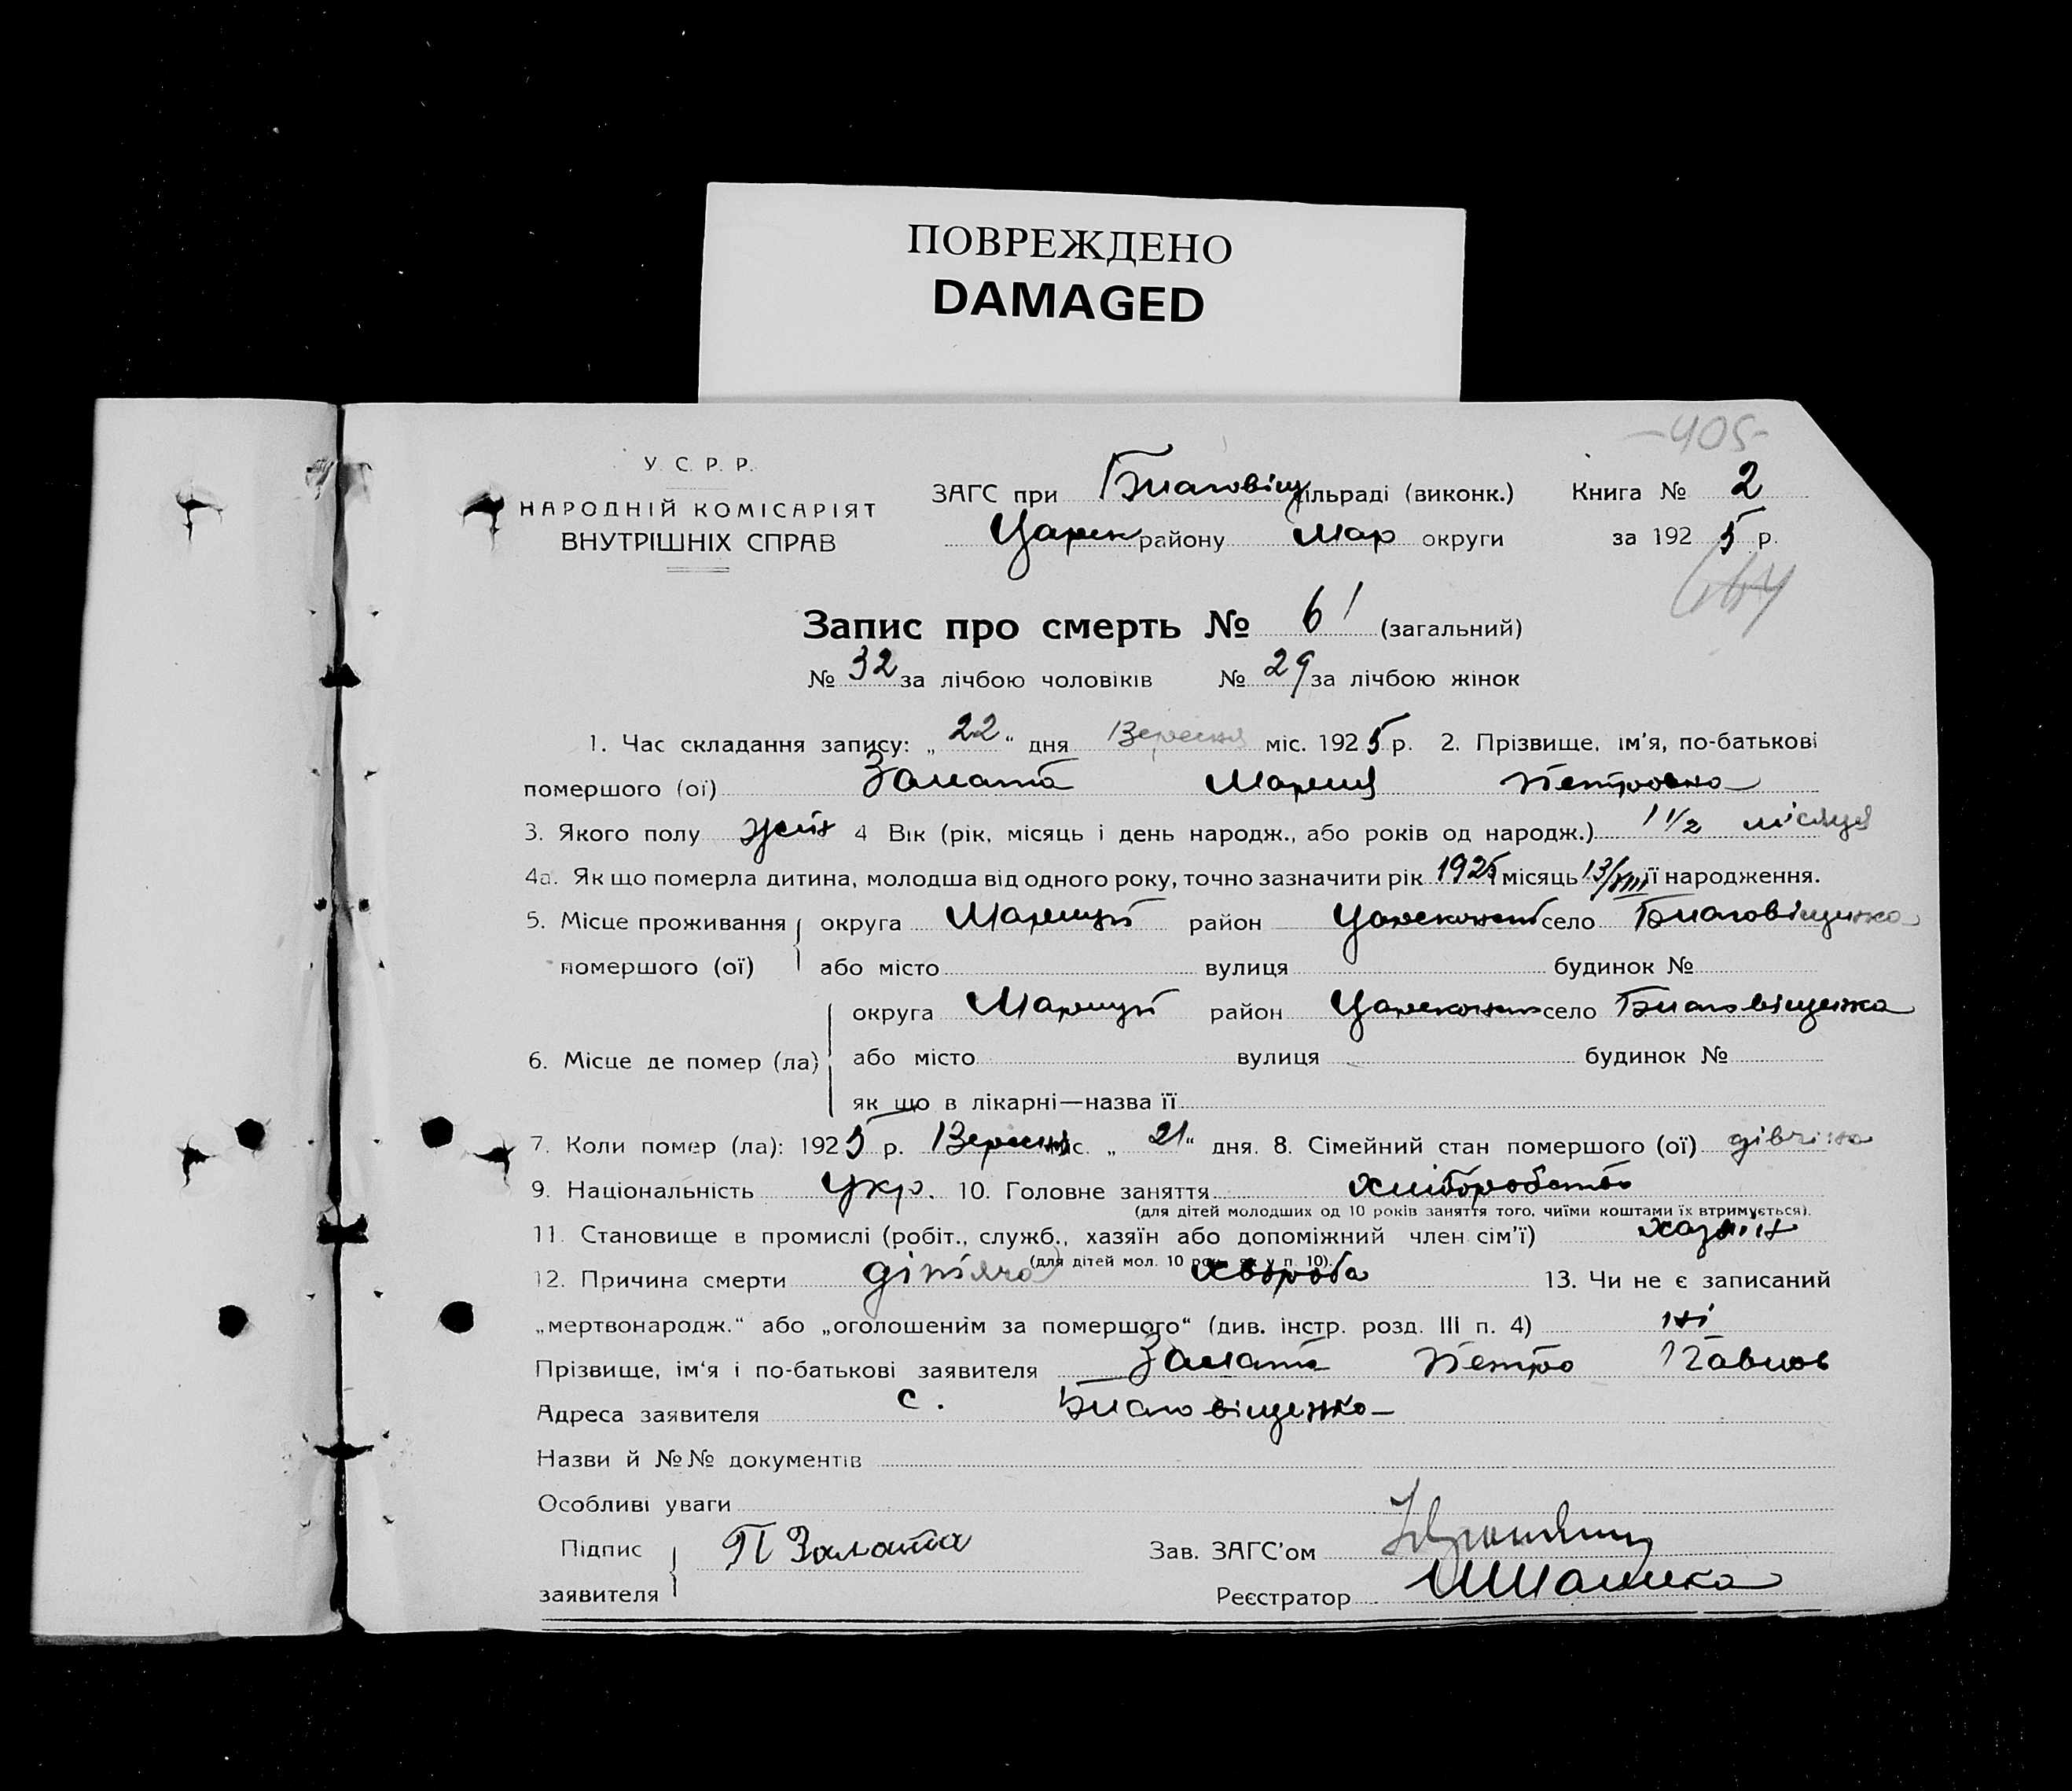 ПОВРЕЖДЕНО
DAMAGED
-405-
У. С. Р. Р.
НАРОДНІЙ КОМІСАРІЯТ
ВНУТРІШНІХ СПРАВ
ЗАГС при Благовіщ сільраді (виконк.) Книга № 2
Царек району Мар округи за 1925 р.
Запис про смерть № 61 (загальний)
№ 32 за лічбою чоловіків № 29 за лічбою жінок
1. Час складання запису: „22“ дня Вересня міс. 1925 р. 2. Прізвище, ім'я, по-батькові
помершого (ої) Замата Мария Петровна
3. Якого полу жін 4 Вік (рік, місяць і день народж., або років од народж.) 1 1/2 місяця
4а. Як що померла дитина, молодша від одного року, точно зазначити рік 1925 місяць 13/VIII її народження.
5. Місце проживання округа Мариуп район Царекон село Благовіщенка
помершого (ої) або місто вулиця будинок №
округа Мариуп район Царекон село Благовіщенка
6. Місце де помер (ла) або місто вулиця будинок №
як що в лікарні—назва її
7. Коли помер (ла): 1925 р. Вересня міс. „21“ дня. 8. Сімейний стан помершого (ої) дівчина
9. Національність Укр. 10. Головне заняття хліборобство
(для дітей молодших од 10 років заняття того, чиїми коштами їх втримується).
11. Становище в промислі (робіт., служб., хазяїн або допоміжний член сім'ї) хазяін
(для дітей мол. 10 рок. як у п. 10).
12. Причина смерти дітяча хвороба 13. Чи не є записаний
„мертвонародж.“ або „оголошеним за помершого“ (див. інстр. розд. III п. 4) ні
Прізвище, ім'я і по-батькові заявителя Замата Петро Павлов
Адреса заявителя с. Благовіщенка
Назви й №№ документів
Особливі уваги
Підпис заявителя П Замата Зав. ЗАГС'ом
Реєстратор